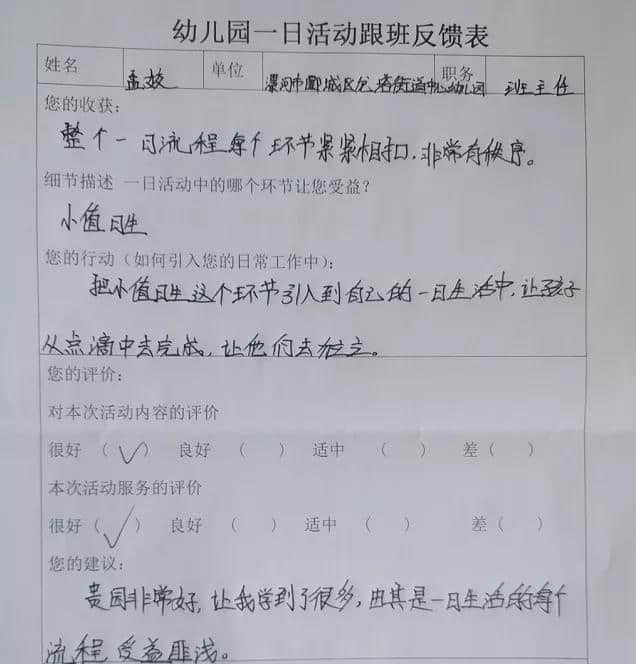 幼儿园一日活动跟班反馈表
姓名 孟姣 单位 漯河市郾城区分塔街道中心幼儿园 职务 班主任
您的收获:
整个一日流程每个环节紧紧相扣,非常有秩序。
细节描述 一日活动中的哪个环节让您受益?
小值日生
您的行动(如何引入您的日常工作中):
把小值日生这个环节引入到自己的一日生活中,让孩子
从点滴中去完成,让他们去独立。
您的评价:
对本次活动内容的评价
很好 (√) 良好 ( ) 适中 ( ) 差( )
本次活动服务的评价
很好(√) 良好 ( ) 适中 ( ) 差( )
您的建议:
贵园非常好,让我学到了很多,尤其是一日生活的每个
流程受益匪浅。